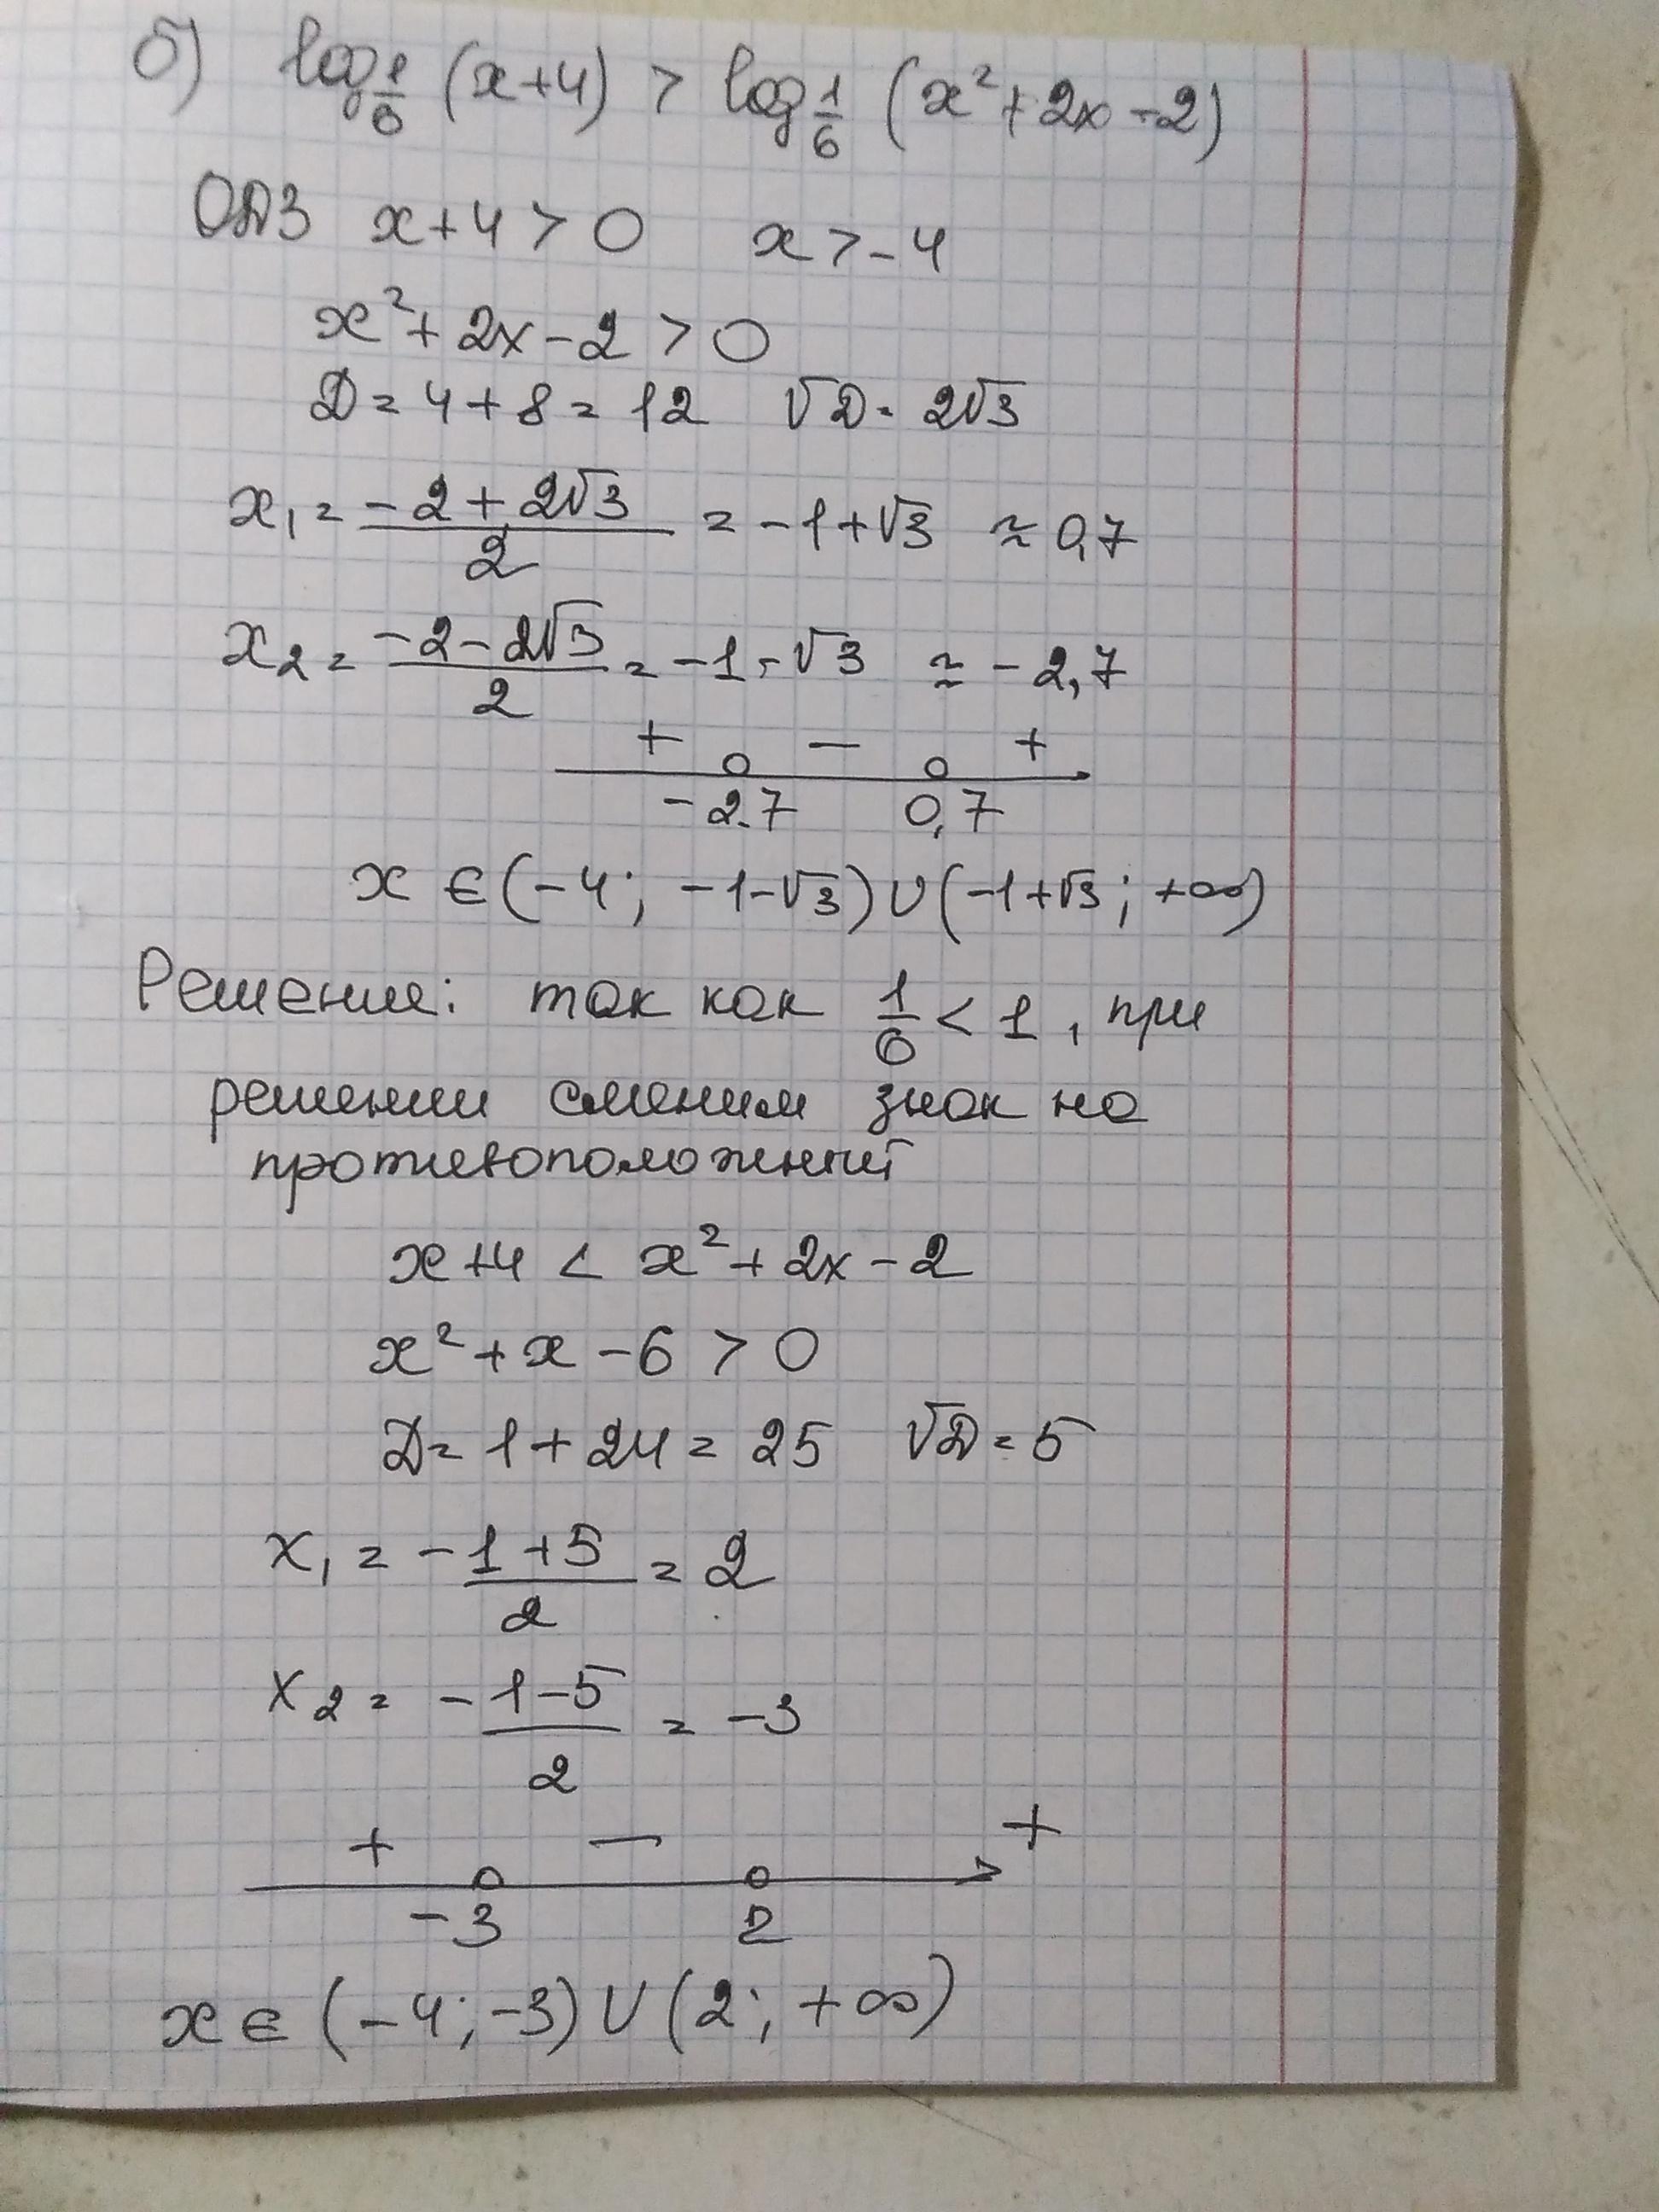 б) log 1/6 (x+4) > log 1/6 (x²+2x-2)
ОДЗ x+4>0 x>-4
x²+2x-2>0
D=4+8=12 √D=2√3
x₁=(-2+2√3)/2=-1+√3 ≈0,7
x₂=(-2-2√3)/2=-1-√3 ≈-2,7
+ - +
-2.7 0,7
x∈(-4; -1-√3)∪(-1+√3; +∞)
Решение: так как 1/6<1, при
решении сменим знак на
противоположний
x+4<x²+2x-2
x²+x-6>0
D=1+24=25 √D=5
x₁=-1+5/2=2
x₂=-1-5/2=-3
+ - +
-3 2
x∈(-4;-3)∪(2;+∞)